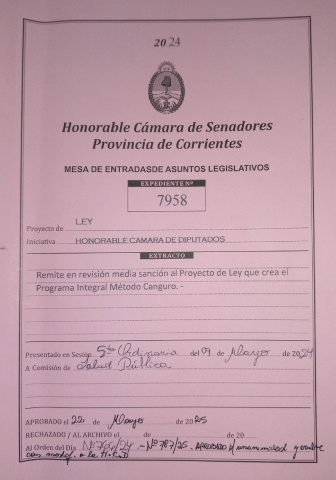 2024
Honorable Cámara de Senadores
Provincia de Corrientes
MESA DE ENTRADASDE ASUNTOS LEGISLATIVOS
EXPEDIENTE Nº
7958
Proyecto de LEY
Iniciativa HONORABLE CAMARA DE DIPUTADOS
EXTRACTO
Remite en revisión media sanción al Proyecto de Ley que crea el
Programa Integral Método Canguro. -
Presentado en Sesión 5ta Ordinaria del 09 de Mayo de 2024
A Comisión de Salud Pública
APROBADO el 22 de Mayo de 2025
RECHAZADO / AL ARCHIVO el de de 20
Al Orden del Día Nº 766/24 - Nº 787/25. APROBADO p/ unanimidad y vuelve
con modif. a la H.C.D